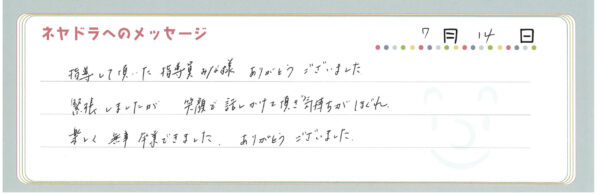 ネヤドラへのメッセージ
7月14日
指導して頂いた指導員みな様 ありがとうございました
緊張しましたが 笑顔で話しかけて頂き気持ちがほぐれ
楽しく無事卒業できました。ありがとうございました。